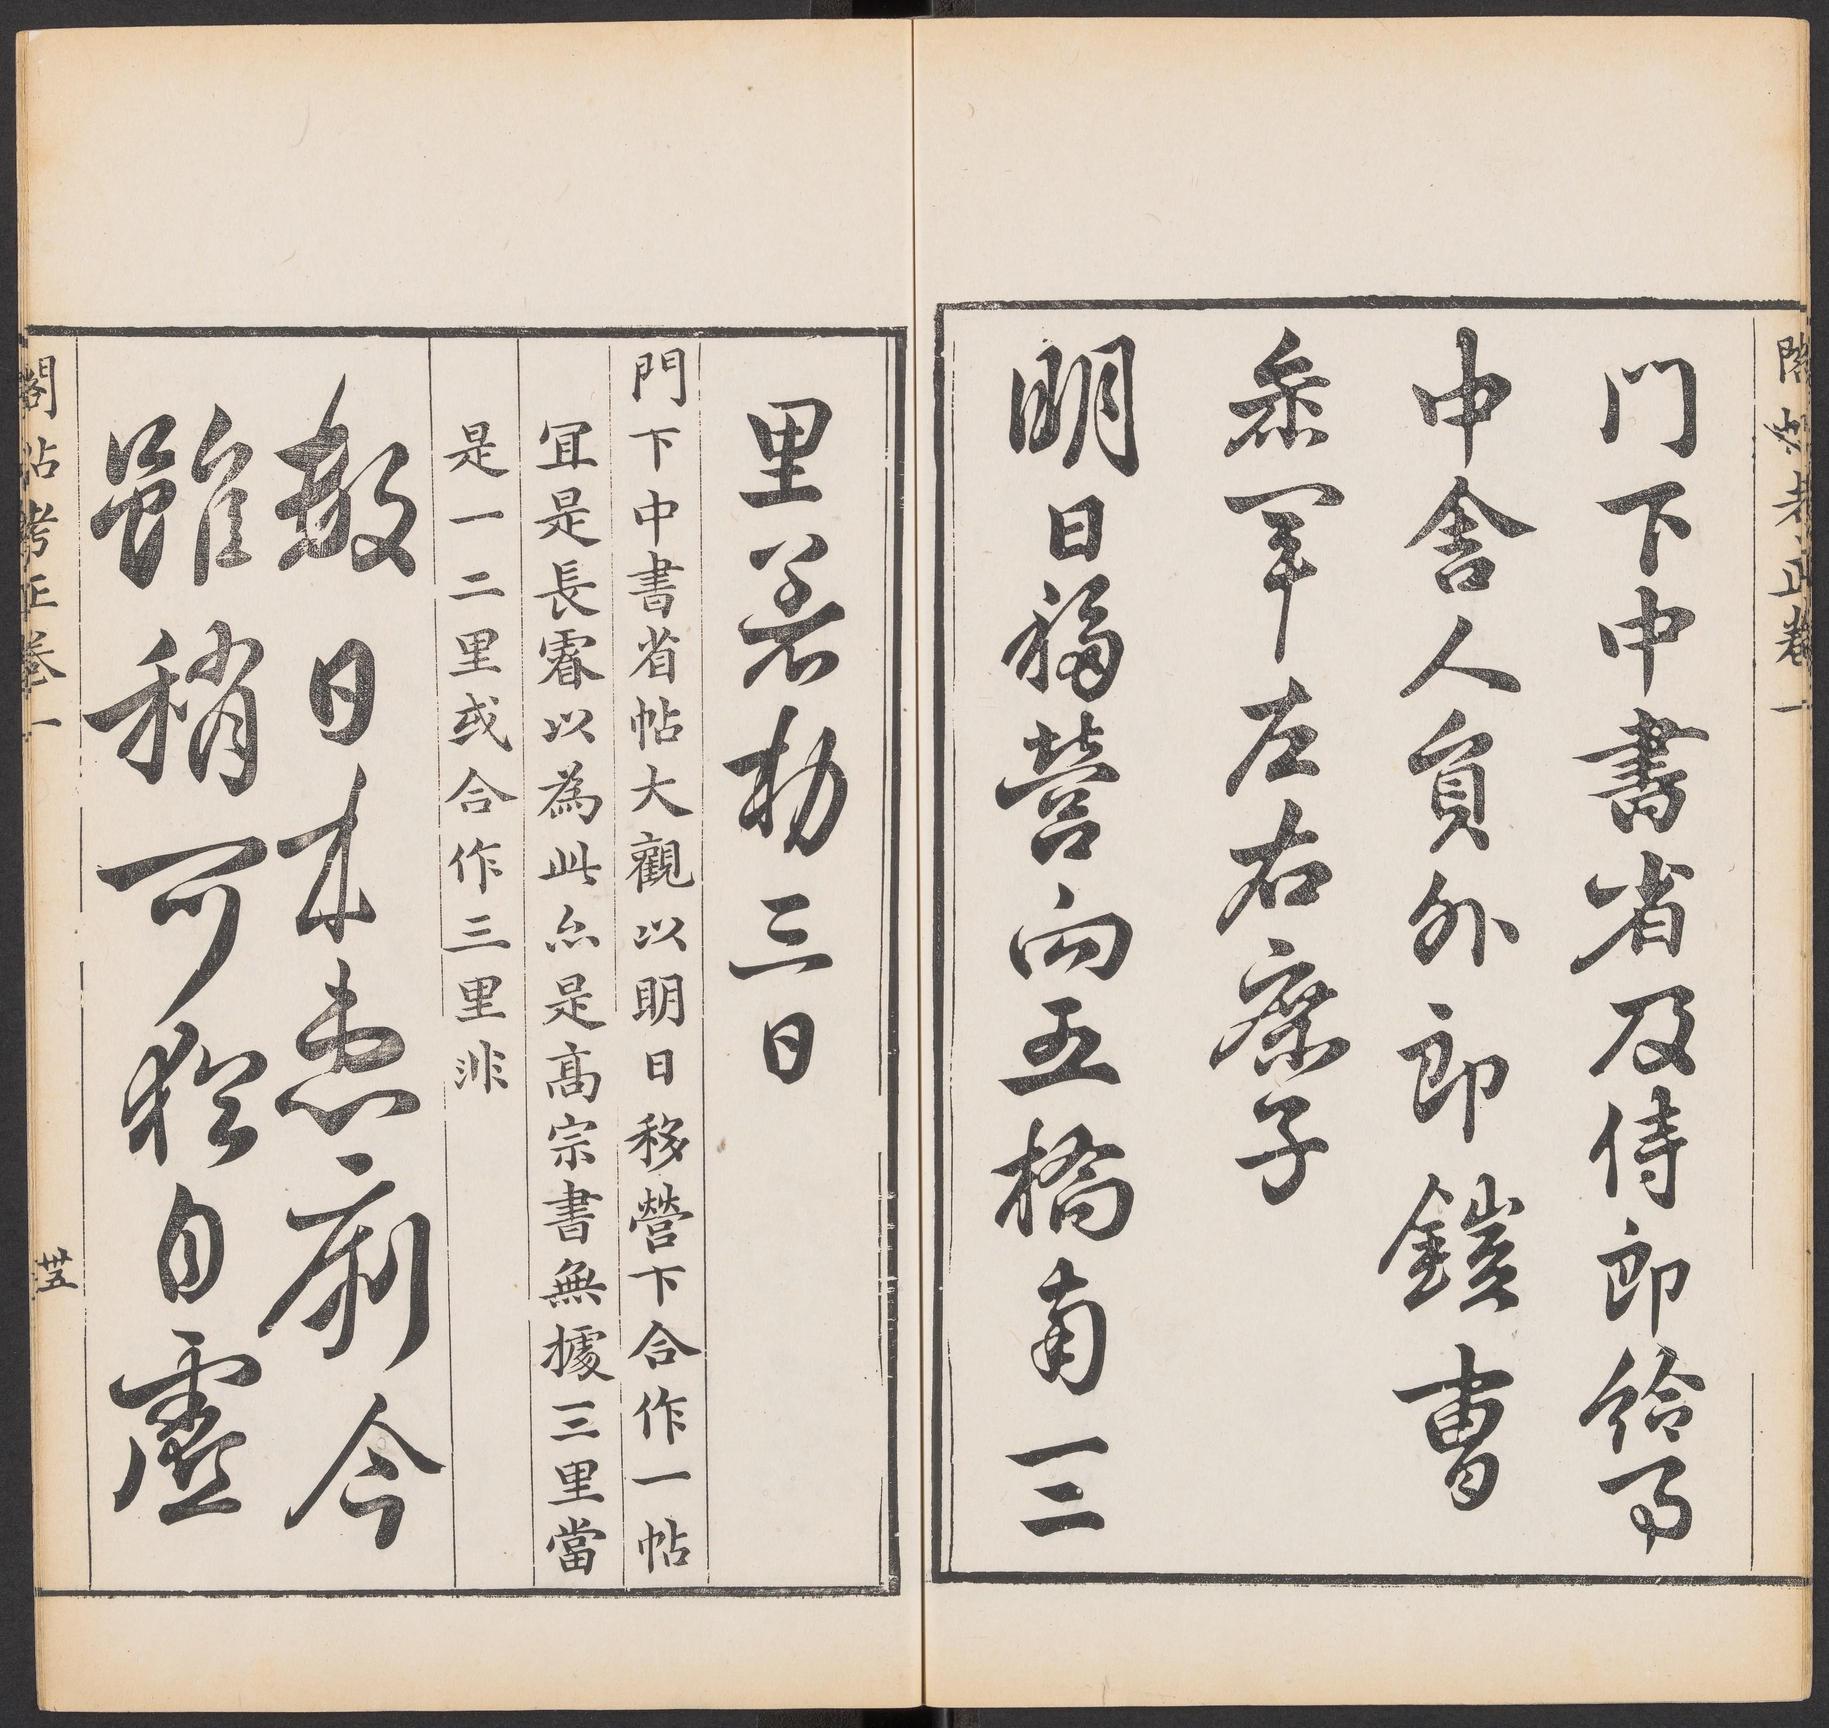 閣帖考正卷一
門下中書省及侍郎給事
中舍人員外郎鎧曹
參軍左右庶子
明日移營向五橋南一二
里若勑三日
門下中書省帖大觀以明日移營下合作一帖
宜是長睿以為此亦是高宗書無據三里當
是一二里或合作三里非
數日來患痢今
雖稍可猶自虛
閣帖考正卷一
卅五